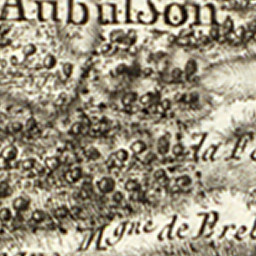 Aubusson
la Fe
M.gne de Brel